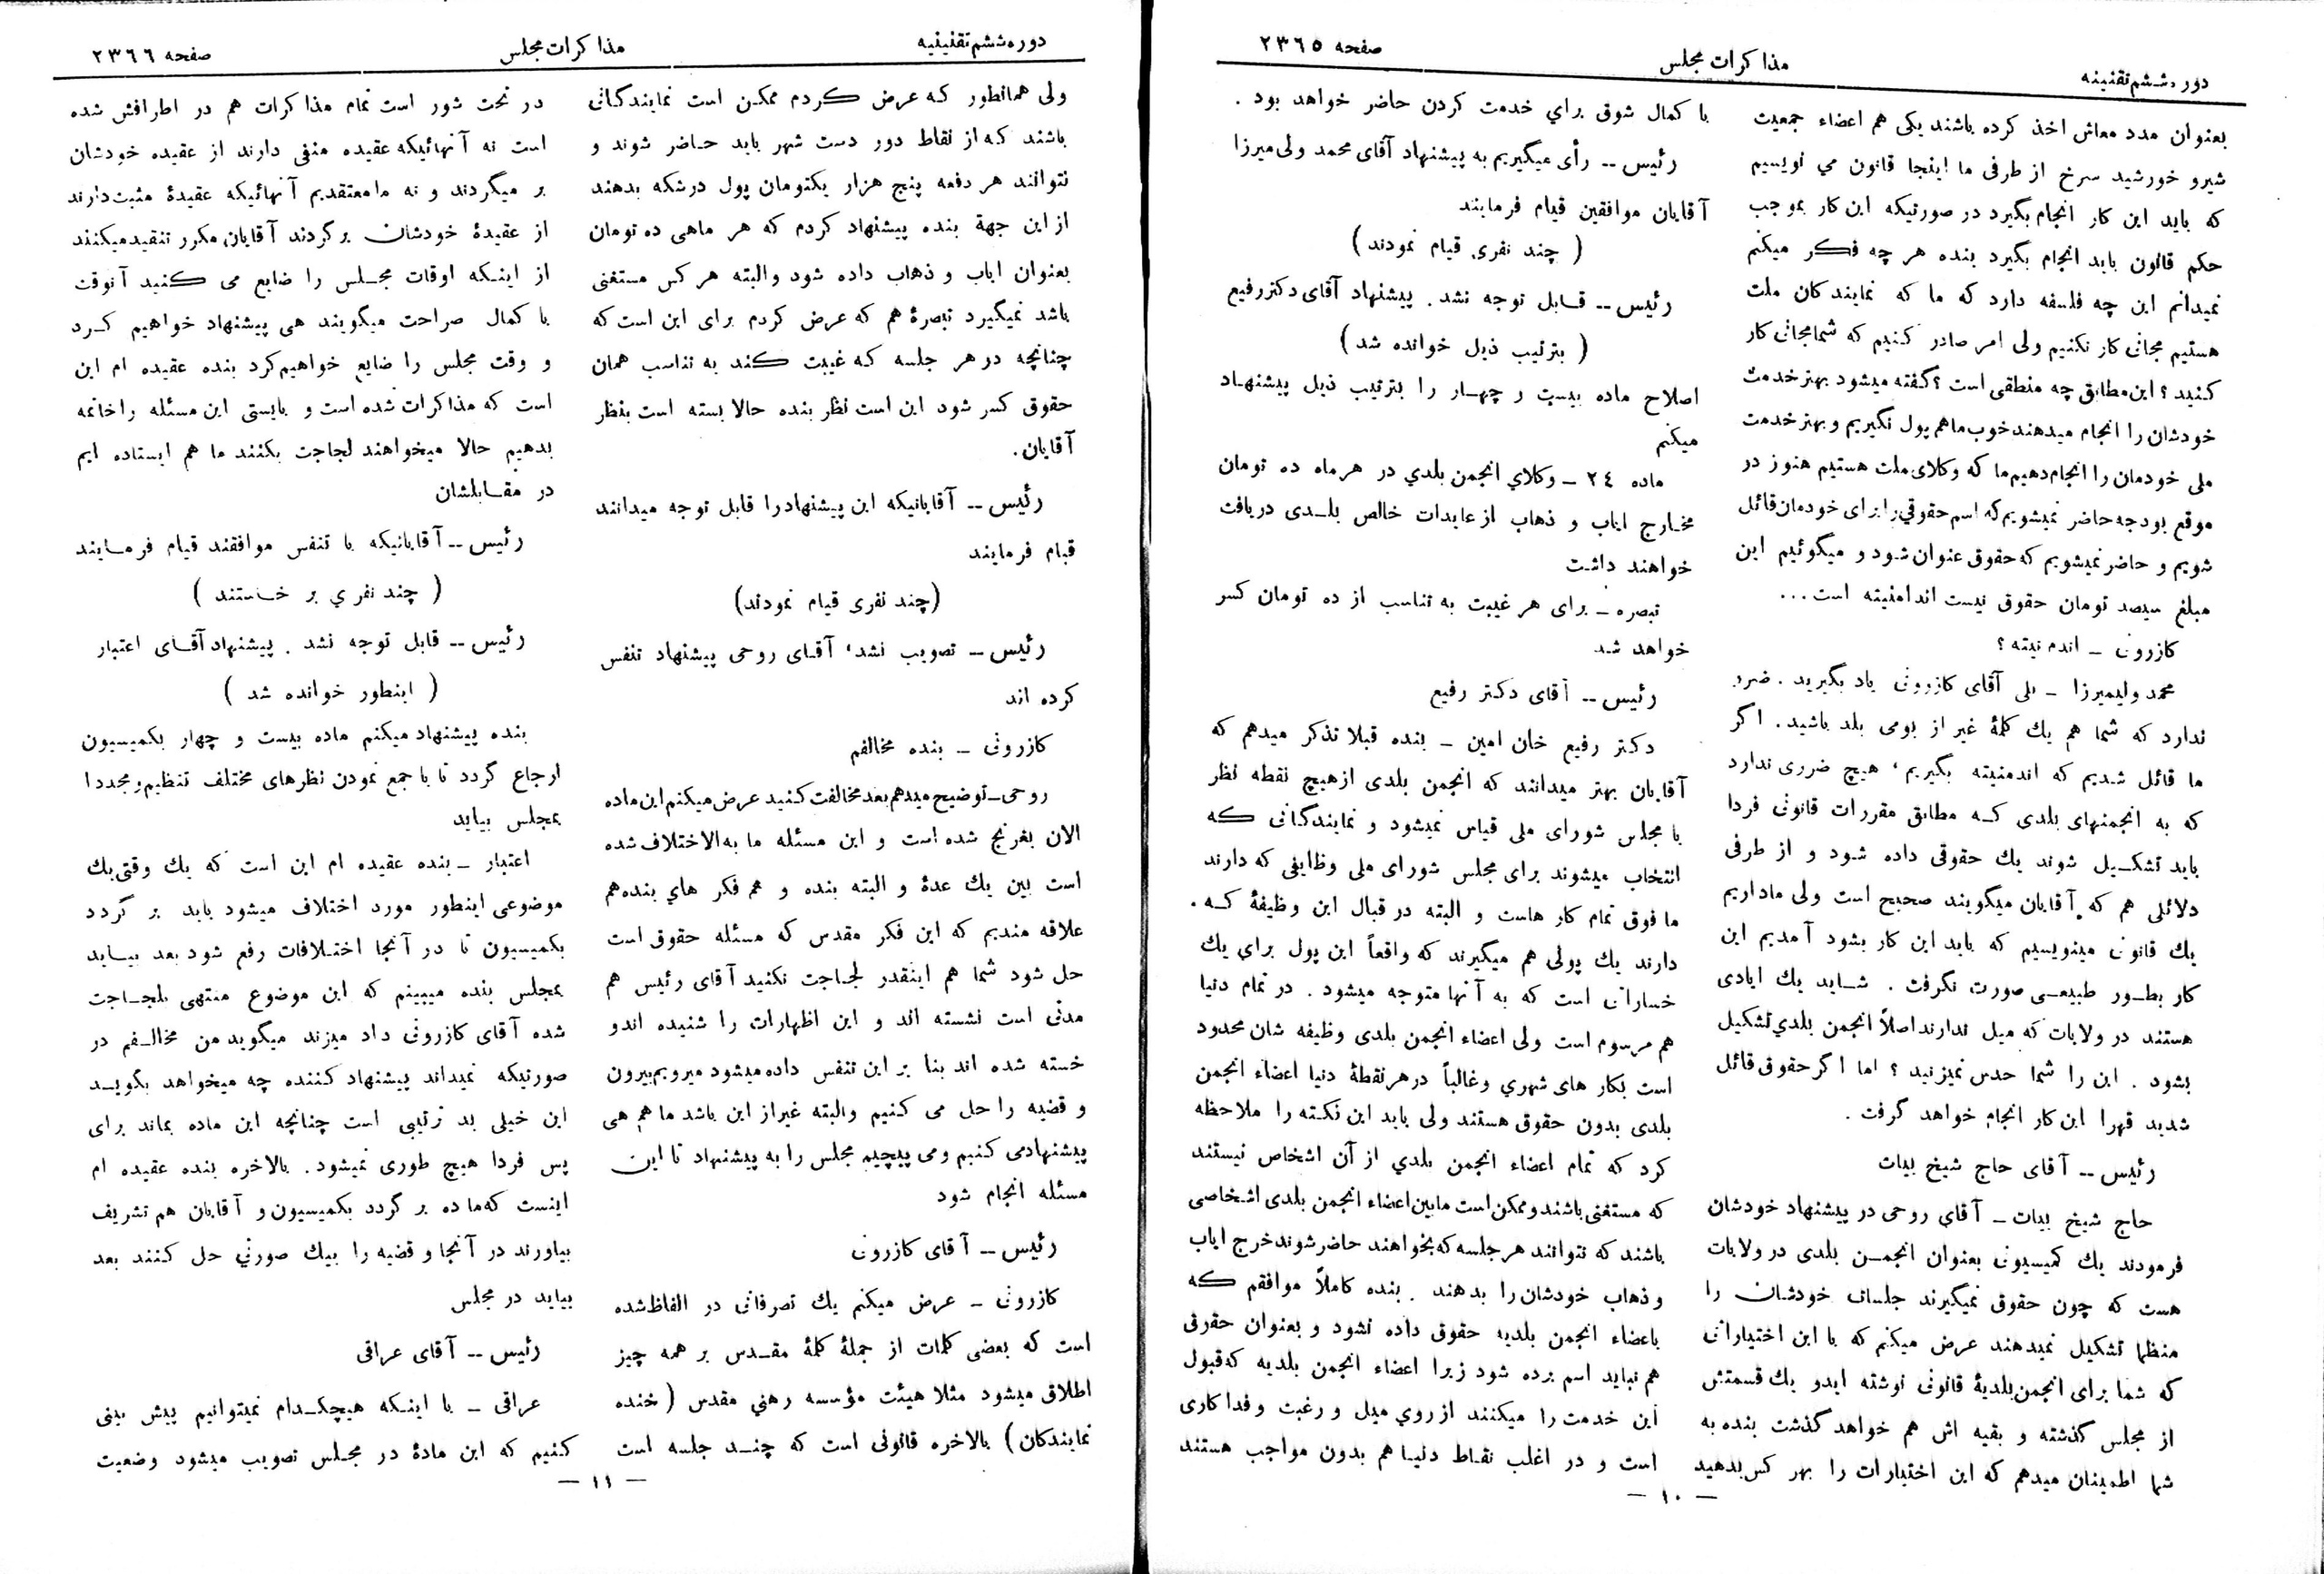 دوره ششم تقنینیه
مذاکرات مجلس
صفحه ۲۳۶۵
بعنوان مدد معاش اخذ کرده باشند یکی هم اعضاء جمعیت
شیرو خورشید سرخ از طرفی ما اینجا قانون می نویسیم
که باید این کار انجام بگیرد در صورتیکه این کار بموجب
حکم قانون باید انجام بگیرد بنده هر چه فکر میکنم
نمیدانم این چه فلسفه دارد که ما که نمایندکان ملت
هستیم مجانی کار نکنیم ولی امر صادر کنیم که شما مجانی کار
کنید ؟ این مطابق چه منطقی است ؟ گفته میشود بهتر خدمت
خودشان را انجام میدهند خوب ما هم پول نگیریم و بهتر خدمت
ملی خودمان را انجام دهیم ما که وکلای ملت هستیم هنوز در
موقع بودجه حاضر نمیشویم که اسم حقوقی را برای خودمان قائل
شویم و حاضر نمیشویم که حقوق عنوان شود و میگوئیم این
مبلغ سیصد تومان حقوق نیست اندامنیته است ...
کازرونی ـ اندمنیته ؟
محمد ولیمیرزا ـ بلی آقای کازرونی یاد بگیرید . ضرر
ندارد که شما هم یك کلمۀ غیر از بومی بلد باشید . اگر
ما قائل شدیم که اندمنیته بگیریم ، هیچ ضرری ندارد
که به انجمنهای بلدی کـه مطابق مقررات قانونی فردا
باید تشکـیل شوند یك حقوقی داده شود و از طرفی
دلائلی هم که آقایان میگویند صحیح است ولی ما داریم
یك قانونی مینویسیم که باید این کار بشود آمدیم این
کار بطـور طبیعـی صورت نگرفت . شـاید یك ایادی
هستند در ولایات که میل ندارند اصلاً انجمن بلدی تشکیل
بشود . این را شما حدس نمیزنید ؟ اما اگر حقوق قائل
شدید قهرا این کار انجام خواهد گرفت .
رئیس ــ آقای حاج شیخ بیات
حاج شیخ بیات ـ آقای روحی در پیشنهاد خودشان
فرمودند یك کمیسیونی بعنوان انجمـن بلدی در ولایات
هست که چون حقوق نمیگیرند جلسات خودشـان را
منظما تشکیل نمیدهند عرض میکنم که با این اختیاراتی
که شما برای انجمن بلدیۀ قانونی نوشته ایدو یك قسمتش
از مجلس گذشته و بقیه اش هم خواهد گذشت بنده به
شما اطمینان میدهم که این اختیارات را بهر کس بدهید
با کمال شوق برای خدمت کردن حاضر خواهد بود .
رئیس ــ رأی میگیریم به پیشنهاد آقای محمد ولی میرزا
آقایان موافقین قیام فرمایند
( چند نفری قیام نمودند )
رئیس ــ قـابل توجه نشد . پیشنهاد آقای دکتر رفیع
( بترتیب ذیل خوانده شد )
اصلاح ماده بیست و چهـار را بترتیب ذیل پیشنهـاد
میکنم
ماده ۲۴ ـ وکلای انجمن بلدی در هر ماه ده تومان
مخـارج ایاب و ذهاب از عایدات خالص بلـدی دریافت
خواهند داشت
تبصره ـ برای هر غیبت به تناسب از ده تومان کسر
خواهد شد
رئیس ــ آقای دکتر رفیع
دکتر رفیع خان امین ـ بنده قبلا تذکر میدهم که
آقایان بهتر میدانند که انجمن بلدی از هیچ نقطه نظر
با مجلس شورای ملی قیاس نمیشود و نمایندگانی کـه
انتخاب میشوند برای مجلس شورای ملی وظایفی که دارند
ما فوق تمام کار هاست و البته در قبال این وظیفۀ کـه
دارند یك پولی هم میگیرند که واقعاً این پول برای یك
خساراتی است که به آنها متوجه میشود . در تمام دنیا
هم مرسوم است ولی اعضاء انجمن بلدی وظیفه شان محدود
است بکار های شهری و غالباً در هر نقطۀ دنیا اعضاء انجمن
بلدی بدون حقوق هستند ولی باید این نکته را ملاحظه
کرد که تمام اعضاء انجمن بلدی از آن اشخاص نیستند
که مستغنی باشند و ممکن است مابین اعضاء انجمن بلدی اشخاصی
باشند که نتوانند هر جلسه که بخواهند حاضر شوند خرج ایاب
و ذهاب خودشان را بدهند . بنده کاملاً موافقم کـه
باعضاء انجمن بلدیه حقوق داده نشود و بعنوان حقوقی
هم نباید اسم برده شود زیرا اعضاء انجمن بلدیه که قبول
این خدمت را میکنند از روی میل و رغبت و فدا کاری
است و در اغلب نقـاط دنیـا هم بدون مواجب هستند
ـ ۱۰ ـ
دوره ششم تقنینیه
مذاکرات مجلس
صفحه ۲۳۶۶
ولی همانطور کـه عرض کـردم ممکـن است نمایندکـانی
باشند کـه از نقاط دور دست شهر باید حـاضر شوند و
نتوانند هر دفعه پنج هزار یکتومان پول درشکه بدهند
از این جهة بنده پیشنهاد کردم که هر ماهی ده تومان
بعنوان ایاب و ذهاب داده شود والبته هر کس مستغنی
باشد نمیگیرد تبصرۀ هم که عرض کردم برای این است که
چنانچه در هر جلسه کـه غیبت کـند به تناسب همان
حقوق کسر شود این است نظر بنده حالا بسته است بنظر
آقایان .
رئیس ــ آقایانیکه این پیشنهاد را قابل توجه میدانند
قیام فرمایند
(چند نفری قیام نمودند)
رئیس ــ تصویب نشد ، آقـای روحی پیشنهاد تنفس
کرده اند
کازرونی ـ بنده مخالفم
روحی ـ توضیح میدهم بعد مخالفت کنید عرض میکنم این ماده
الان بغرنج شده است و این مسئله ما به الاختلاف شده
است بین یك عدۀ و البته بنده و هم فکر های بنده هم
علاقه مندیم که این فکر مقدس که مسئله حقوق است
حل شود شما هم اینقدر لجـاجت نکنید آقای رئیس هم
مدتی است نشسته اند و این اظهارات را شنیده اندو
خسته شده اند بنا بر این تنفس داده میشود میرویم بیرون
و قضیه را حل می کنیم والبته غیر از این باشد ما هم هی
پیشنهاد می کنیم و می پیچیم مجلس را به پیشنهاد تا این
مسئله انجام شود
رئیس ــ آقای کازرونی
کازرونی ـ عرض میکنم یك تصرفاتی در الفاظ شده
است که بعضی کلمات از جملۀ کلمۀ مقـدس بر همه چیز
اطلاق میشود مثلا هیئت مؤسسه رهنی مقدس ( خنده
نمایندکان ) بالاخره قانونی است که چنـد جلسه است
در تحت شور است تمام مذاکرات هم در اطرافش شده
است نه آنهائیکه عقیده منفی دارند از عقیده خودشان
بر میگردند و نه ما معتقدیم آنهائیکه عقیدۀ مثبت دارند
از عقیدۀ خودشـان برگردند آقایان مکرر تنقید میکنند
از اینـکه اوقات مجـلس را ضایع می کـنید آنوقت
با کمال صراحت میگویند هی پیشنهاد خواهیم کـرد
و وقت مجلس را ضایع خواهیم کرد بنده عقیده ام این
است که مذاکرات شده است و بایستی این مسئله را خاتمه
بدهیم حالا میخواهند لجاجت بکنند ما هم ایستاده ایم
در مقـابلشان
رئیس ــ آقایانیکه با تنفس موافقند قیام فرمـایند
( چند نفری بر خـاستند )
رئیس ــ قابل توجه نشد . پیشنهاد آقـای اعتبار
( اینطور خوانده شد )
بنده پیشنهاد میکنم ماده بیست و چهار بکمیسیون
ارجاع گردد تا با جمع نمودن نظرهای مختلف تنظیم و مجددا
بمجلس بیاید
اعتبار ـ بنده عقیده ام این است که یك وقتی یك
موضوعی اینطور مورد اختلاف میشود باید بر گردد
بکمیسیون تا در آنجا اختـلافات رفع شود بعد بیـاید
بمجلس بنده میبینم که این موضوع منتهی بلجـاجت
شده آقای کازرونی داد میزند میگوید من مخالـفم در
صورتیکه نمیداند پیشنهاد کننده چه میخواهد بگویـد
این خیلی بد ترتیبی است چنانچه این ماده بماند برای
پس فردا هیچ طوری نمیشود . بالاخره بنده عقیده ام
اینست که ماده بر گردد بکمیسیون و آقایان هم تشریف
بیاورند در آنجا و قضیه را بیك صورتی حل کنند بعد
بیاید در مجلس
رئیس ــ آقای عراقی
عراقی ـ با اینـکه هیچکـدام نمیتوانیم پیش بینی
کنیم که این مادۀ در مجـلس تصویب میشود وضعیت
ـ ۱۱ ـ